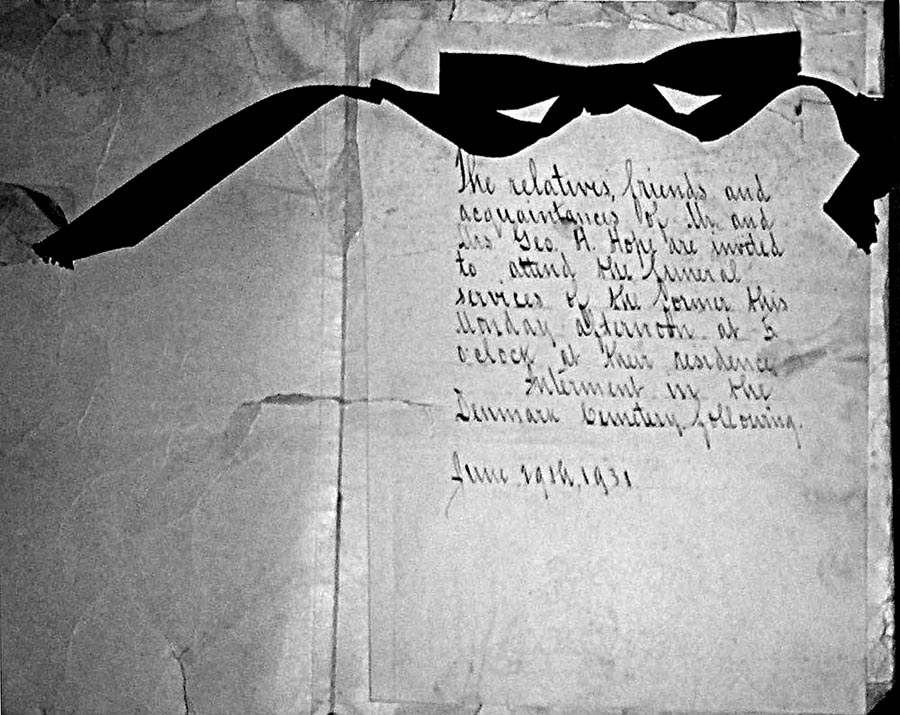 The relatives, friends and
acquaintances of Mr. and
Mrs Geo. H. Hope are invited
to attend the funeral
services of the former this
Monday afternoon at 5
o'clock at their residence
Interment in the
Denmark Cemetery following.
June 29th, 1931